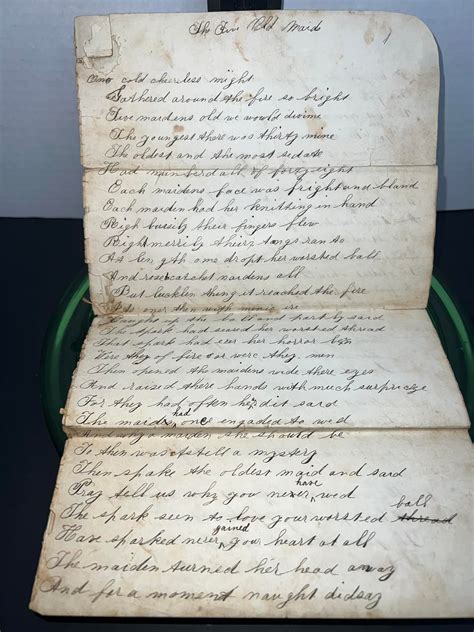 The Five Old Maids
One cold cheerless night
Gathered around the fire so bright
Five maidens old we would divine
The youngest there was thirty nine
The oldest and the most sedate
Had numberd all of forty eight
Each maidens face was bright and bland
Each maiden had her knitting in hand
Righ busily their fingers flew
Right merrily their tongs ran to
As length one dropt her worsted ball
And rose maidens all
But lucklen thing it reached the fire
one then with mimic ire
up the ball and partly said
The spark had seared her worsted thread
That spark had her horror
Were they of fire or were they men
Then opened the maidens wide there eyes
And raised there hands with much surprize
For they had often herd it said
The maid had once engaded to wed
And why a maiden she should be
To them was still a mystery
Then spake the oldest maid and said
Pray tell us why you never have wed
The spark seen to love your worsted thread ball
Have sparked never gained your heart at all
The maiden turned her head away
And for a moment naught did say